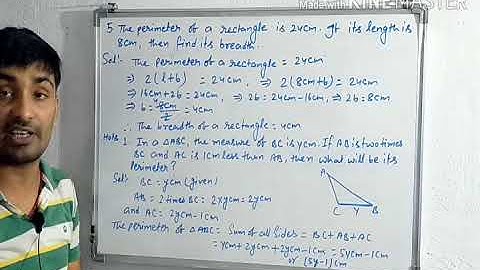 Made with KINEMASTER
5. The perimeter of a rectangle is 24cm. If its length is
8cm, then find its breadth.
Sol:- The perimeter of a rectangle = 24cm
⇒ 2(l+b) = 24cm ⇒ 2(8cm+b) = 24cm
⇒ 16cm+2b = 24cm, ⇒ 2b = 24cm-16cm, ⇒ 2b = 8cm
⇒ b = 8cm/2 = 4cm
∴ The breadth of a rectangle = 4cm
1. In a △ABC, the measure of BC is ycm. If AB is two times
BC and AC is 1cm less than AB, then what will be its
perimeter?
Sol:
BC = ycm (given)
AB = 2 times BC = 2×ycm = 2ycm
and AC = 2ycm-1cm
A
C Y B
The perimeter of △ABC = Sum of all sides = BC+AB+AC
= ycm+2ycm+2ycm-1cm = 5ycm-1cm
or (5y-1)cm